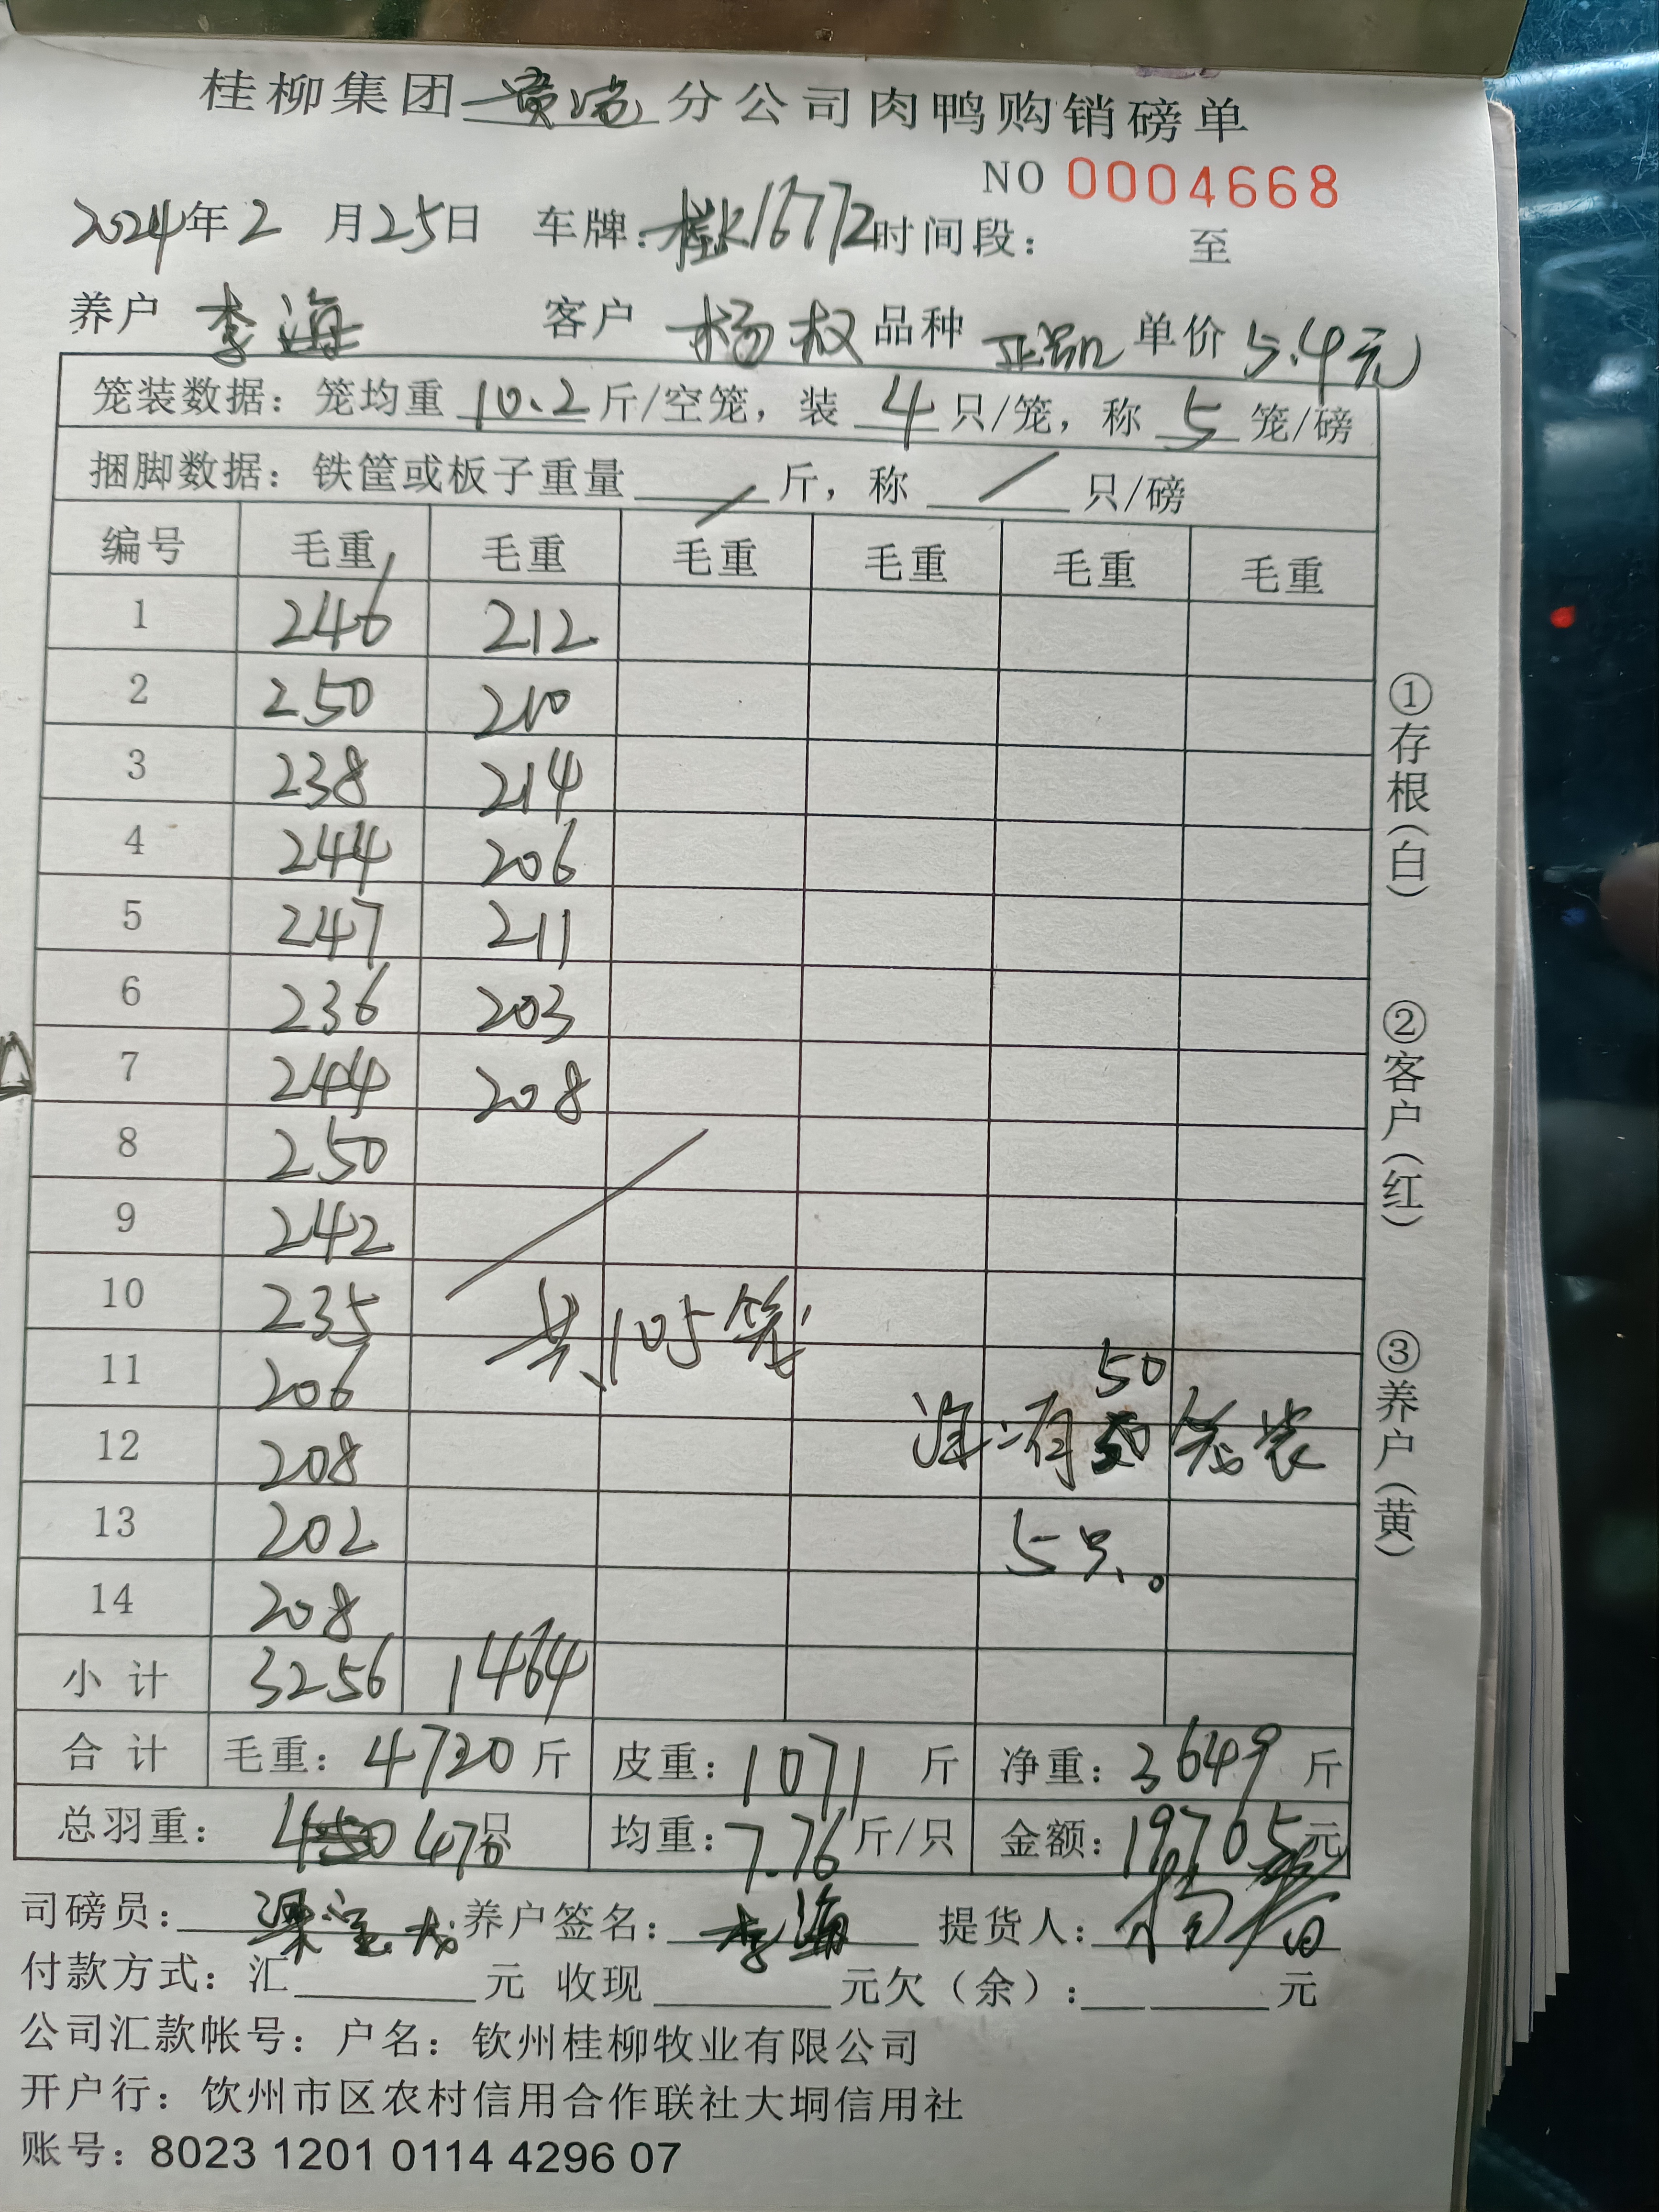 桂柳集团黄沙分公司肉鸭购销磅单
NO 0004668
2024年2月25日 车牌:桂K16772时间段: 至
养户 李海 客户 杨权 品种 单价 5.4元
笼装数据: 笼均重 10.2 斤/空笼, 装 4 只/笼, 称 5 笼/磅
捆脚数据: 铁筐或板子重量 / 斤, 称 / 只/磅
编号 毛重 毛重 毛重 毛重 毛重 毛重
1 246 212
2 250 210
3 238 214
4 244 206
5 247 211
6 236 203
7 244 208
8 250
9 242
10 235
共105笼
11 206
50
12 208
注:有 笼装
13 202
5只。
14 208
小计 3256 1464
合计 毛重: 4720 斤 皮重: 1071 斤 净重: 3649 斤
总羽重: 470只 均重: 7.76 斤/只 金额: 19705元
司磅员: 养户签名: 李海 提货人:
付款方式: 汇 元 收现 元欠(余): 元
公司汇款帐号: 户名: 钦州桂柳牧业有限公司
开户行: 钦州市区农村信用合作联社大垌信用社
账号: 8023 1201 0114 4296 07
①存根(白)
②客户(红)
③养户(黄)